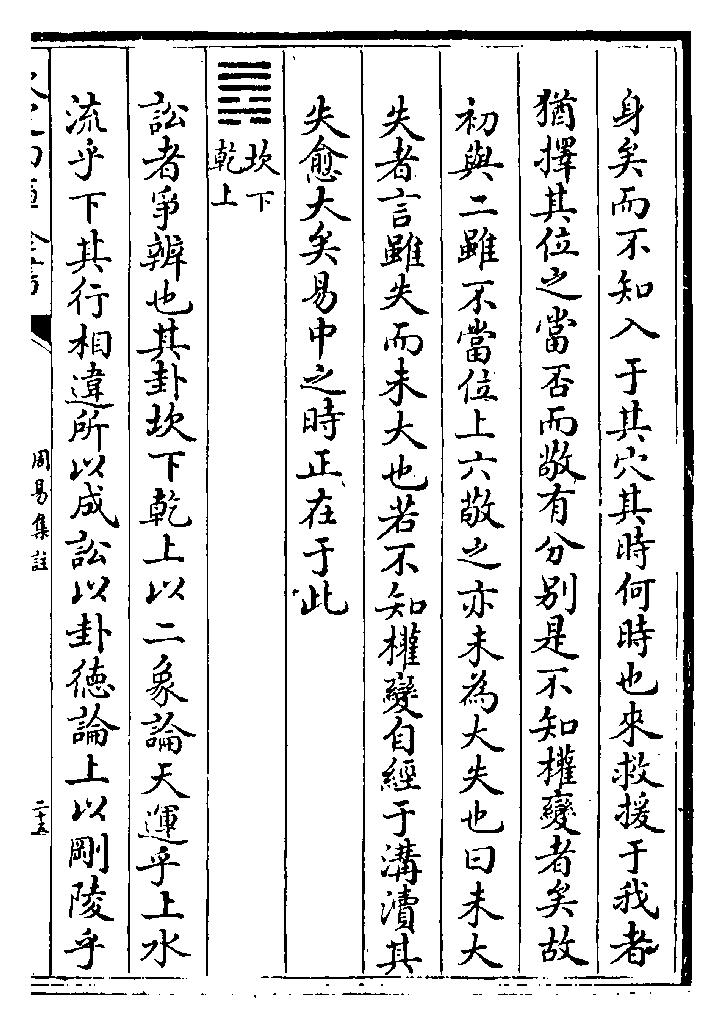 身矣而不知入于其穴其時何時也來救援于我者
猶擇其位之當否而敬有分别是不知權變者矣故
初與二雖不當位上六敬之亦未為大失也曰未大
失者言雖失而未大也若不知權變自經于溝瀆其
失愈大矣易中之時正在于此
坎下
乾上
訟者爭辨也其卦坎下乾上以二象論天運乎上水
流乎下其行相違所以成訟以卦德論上以剛陵乎
周易集註
二十五